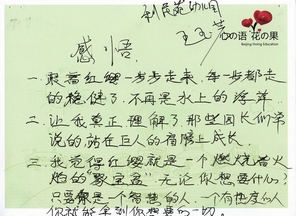 利民苑幼儿园
王玉芳
心の语 花の果
Beijing Hoing Education
感悟
一、跟着红缨一步步走来，每一步都走
的稳健了，不再是水上的浮萍
二、让我真正理解了那些园长们常
说的，站在巨人的肩膀上成长
三、我觉得红缨就是一个燃烧着火
焰的“聚宝盆”无论你想要什么！
只要你是一个智慧的人，一个有使度的人
你就能拿到你想要的一切。